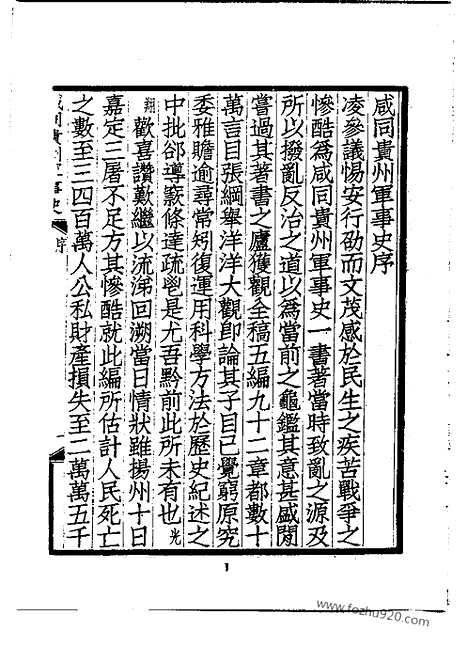 咸同貴州軍事史序
凌參議惕安行劭而文茂感於民生之疾苦戰爭之
慘酷爲咸同貴州軍事史一書著當時致亂之源及
所以撥亂反治之道以爲當前之龜鑑其意甚盛閒
嘗過其著書之廬獲觀全稿五編九十二章都數十
萬言目張綱舉洋洋大觀卽論其子目已覺窮原究
委雅贍逾尋常矧復運用科學方法於歷史紀述之
中批郤導窾條達疏鬯是尤吾黔前此所未有也光
翔歡喜讚歎繼以流涕回溯當日情狀雖揚州十日
嘉定三屠不足方其慘酷就此編所估計人民死亡
之數至三四百萬人公私財產損失至二萬萬五千
咸同貴州軍事史 序 一
1
www.fozhu920.com